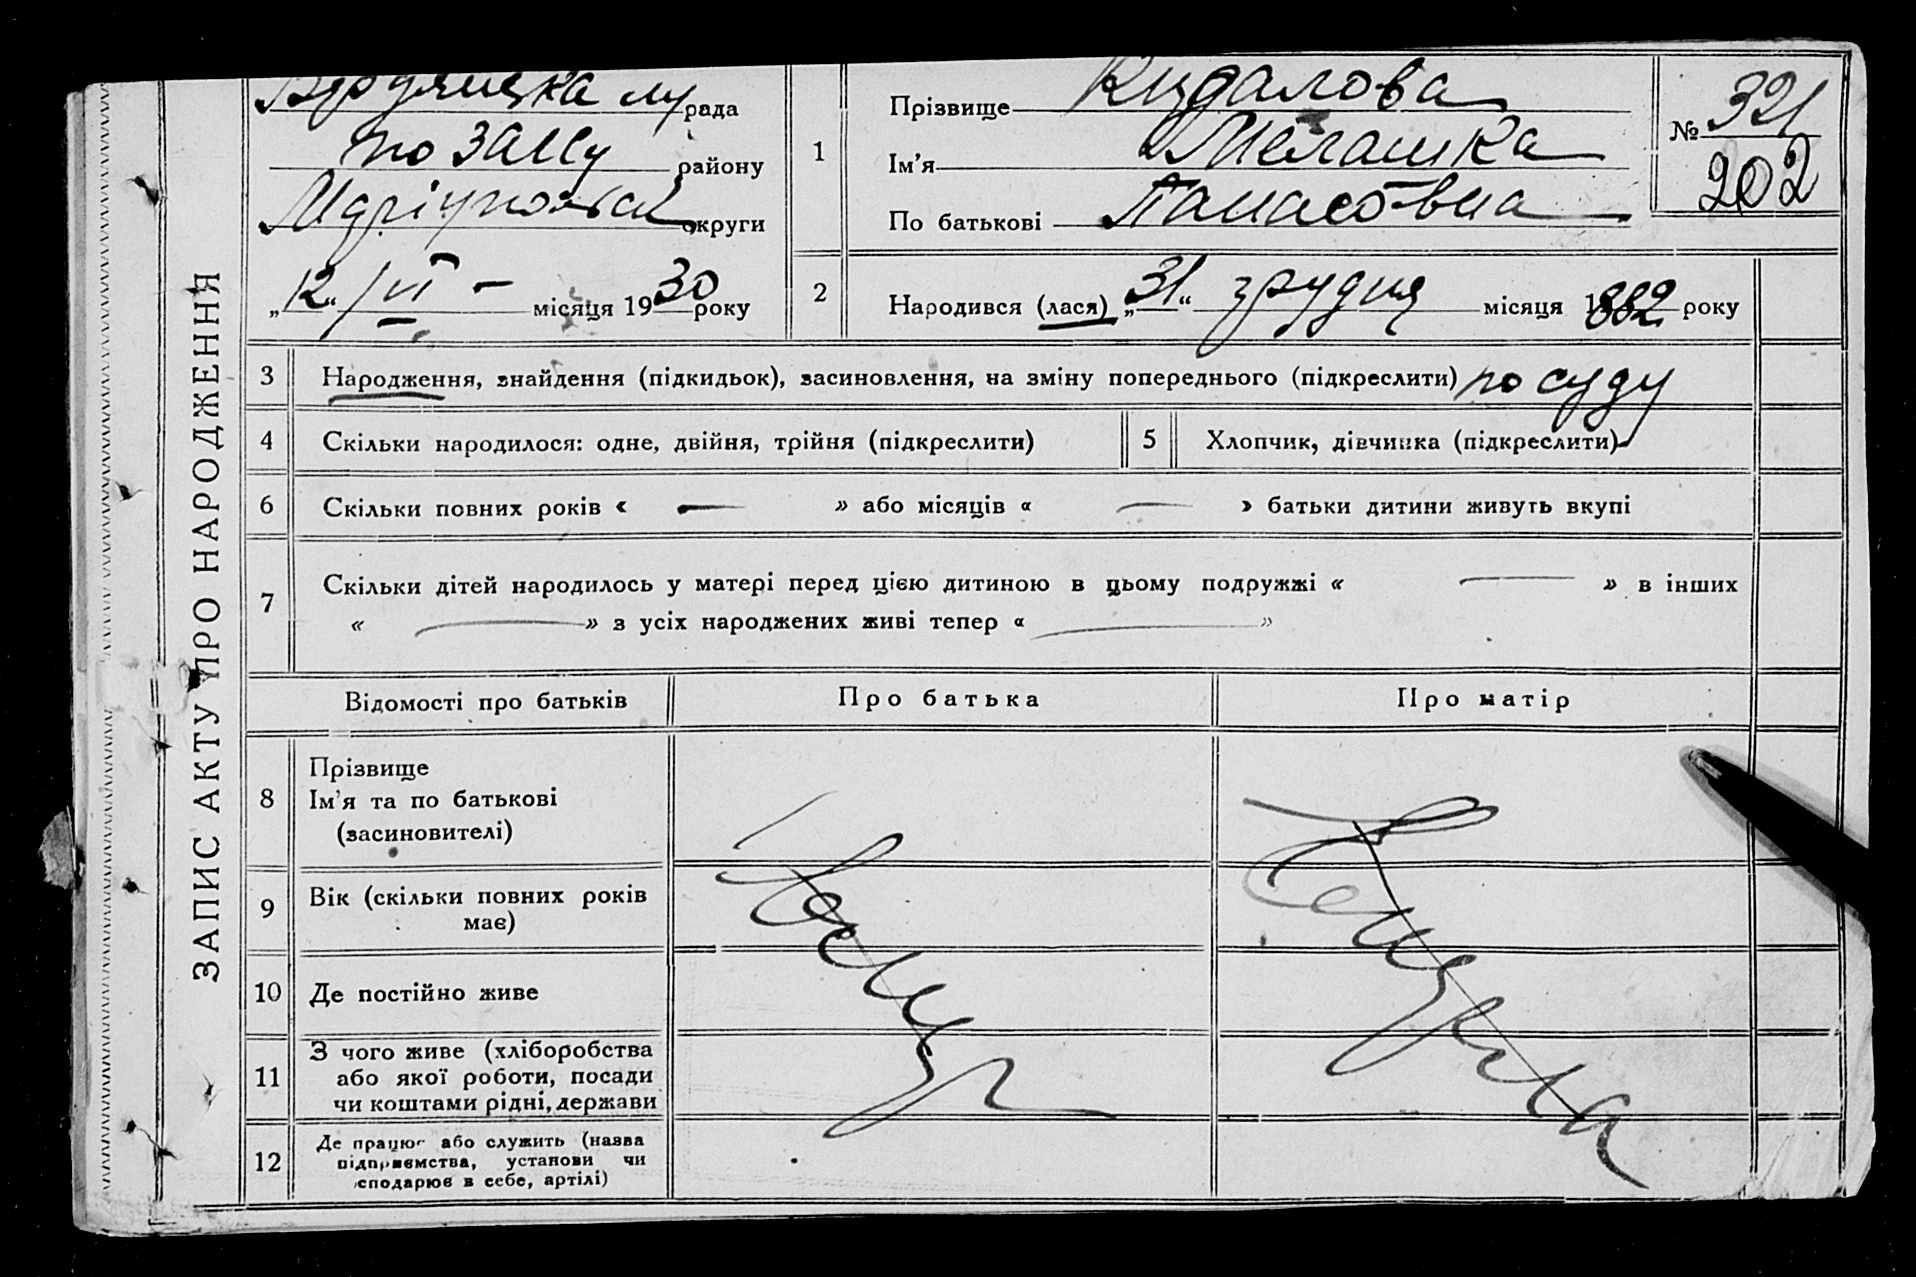 Бердянська м рада
по ЗАГСу району
Маріупольськ округи
„12“ / VI — місяця 1930 року
1
Прізвище Кидалова
Ім’я Мелашка
По батькові Панасовна
№ 321
202
2
Народився (лася) „31“ грудня місяця 1882 року
ЗАПИС АКТУ ПРО НАРОДЖЕННЯ
3 Народження, знайдення (підкидьок), засиновлення, на зміну попереднього (підкреслити) по суду
4 Скільки народилося: одне, двійня, трійня (підкреслити) 5 Хлопчик, дівчинка (підкреслити)
6 Скільки повних років « — » або місяців « — » батьки дитини живуть вкупі
7 Скільки дітей народилось у матері перед цією дитиною в цьому подружжі « — » в інших
« — » з усіх народжених живі тепер « — »
Відомості про батьків Про батька Про матір
8 Прізвище
Ім’я та по батькові
(засиновителі)
9 Вік (скільки повних років
має)
10 Де постійно живе
11 З чого живе (хліборобства
або якої роботи, посади
чи коштами рідні, держави
12 Де працює або служить (назва
підприємства, установи чи
господарює в себе, артілі)